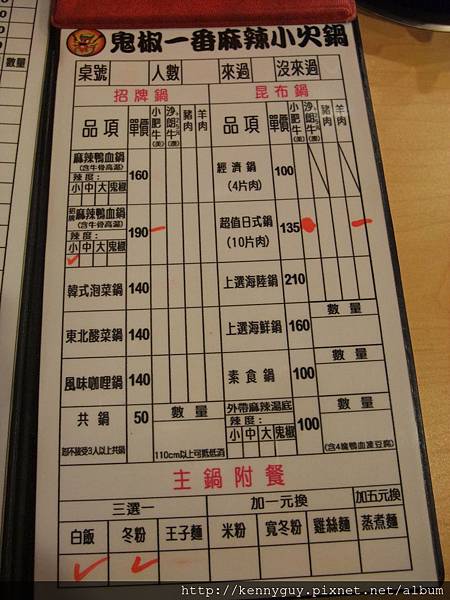 鬼椒一番麻辣小火鍋
桌號 人數 來過 沒來過
招牌鍋 昆布鍋
品項 單價 小肥牛(美) 沙朗牛(澳) 豬肉 羊肉 品項 單價 小肥牛(美) 沙朗牛(澳) 豬肉 羊肉
麻辣鴨血鍋
(含牛骨高湯)
辣度:
小 中 大 鬼椒
160
經濟鍋
(4片肉)
100
招牌 麻辣鴨血鍋
(含牛骨高湯)
辣度:
小 中 大 鬼椒
190
超值日式鍋
(10片肉)
135
韓式泡菜鍋 140 上選海陸鍋 210
數量
東北酸菜鍋 140 上選海鮮鍋 160
風味咖哩鍋 140 素食鍋 100
共鍋 50 數量
恕不接受3人以上共鍋 110cm以上可抵低消
外帶麻辣湯底 數量
辣度:
小 中 大 鬼椒
100
(含4塊鴨血凍豆腐)
主鍋附餐
三選一 加一元換 加五元換
白飯 冬粉 王子麵 米粉 寬冬粉 雞絲麵 蒸煮麵
數量
http://kennyguy.pixnet.net/album